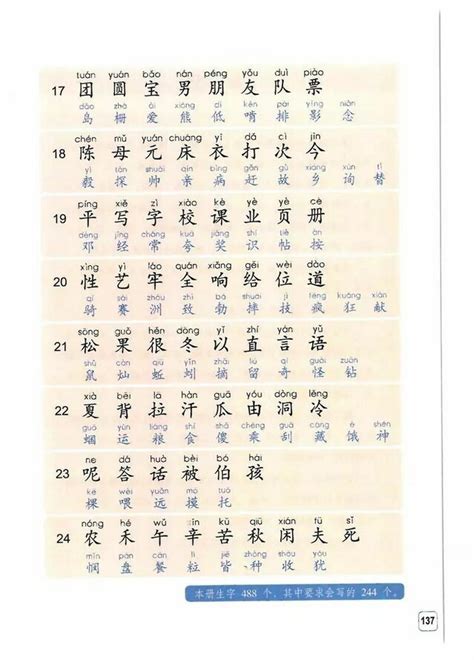 tuán yuán bǎo nán péng yǒu duì piào
17 团 圆 宝 男 朋 友 队 票
dǎo zhà ài xióng dī kěn pái yǐng niàn
岛 栅 爱 熊 低 啃 排 影 念
chén mǔ yuán chuáng yī dǎ cì jīn
18 陈 母 元 床 衣 打 次 今
yì tàn shuài qīn bìng gǎn gù xiāng xún tì
毅 探 帅 亲 病 赶 故 乡 询 替
píng xiě zì xiào kè yè yè cè
19 平 写 字 校 课 业 页 册
dèng jīng cháng kuā jiǎng shí tiě àn
邓 经 常 夸 奖 识 帖 按
xìng yì láo quán xiǎng gěi wèi dào
20 性 艺 牢 全 响 给 位 道
qí sài zhōu zhì bó shuāi jì fēng kuáng xiàn
骑 赛 洲 致 勃 摔 技 疯 狂 献
sōng guǒ hěn dōng yǐ zhí yán yǔ
21 松 果 很 冬 以 直 言 语
shǔ càn qiū yǐn zhāi liú qí guài zuàn
鼠 灿 蚯 蚓 摘 留 奇 怪 钻
xià bèi lā hàn guā yóu dòng lěng
22 夏 背 拉 汗 瓜 由 洞 冷
guō yùn liáng shí shǎ chéng guā cáng é shén
蝈 运 粮 食 傻 乘 刮 藏 饿 神
ne dá huà bèi bó hái
23 呢 答 话 被 伯 孩
kē wèi yuǎn mō tuō
棵 喂 远 摸 托
nóng hé wǔ xīn kǔ qiū xián fū sǐ
24 农 禾 午 辛 苦 秋 闲 夫 死
mǐn pán cān lì jiē zhòng shōu yóu
悯 盘 餐 粒 皆 种 收 犹
本册生字 488 个，其中要求会写的 244 个。
137